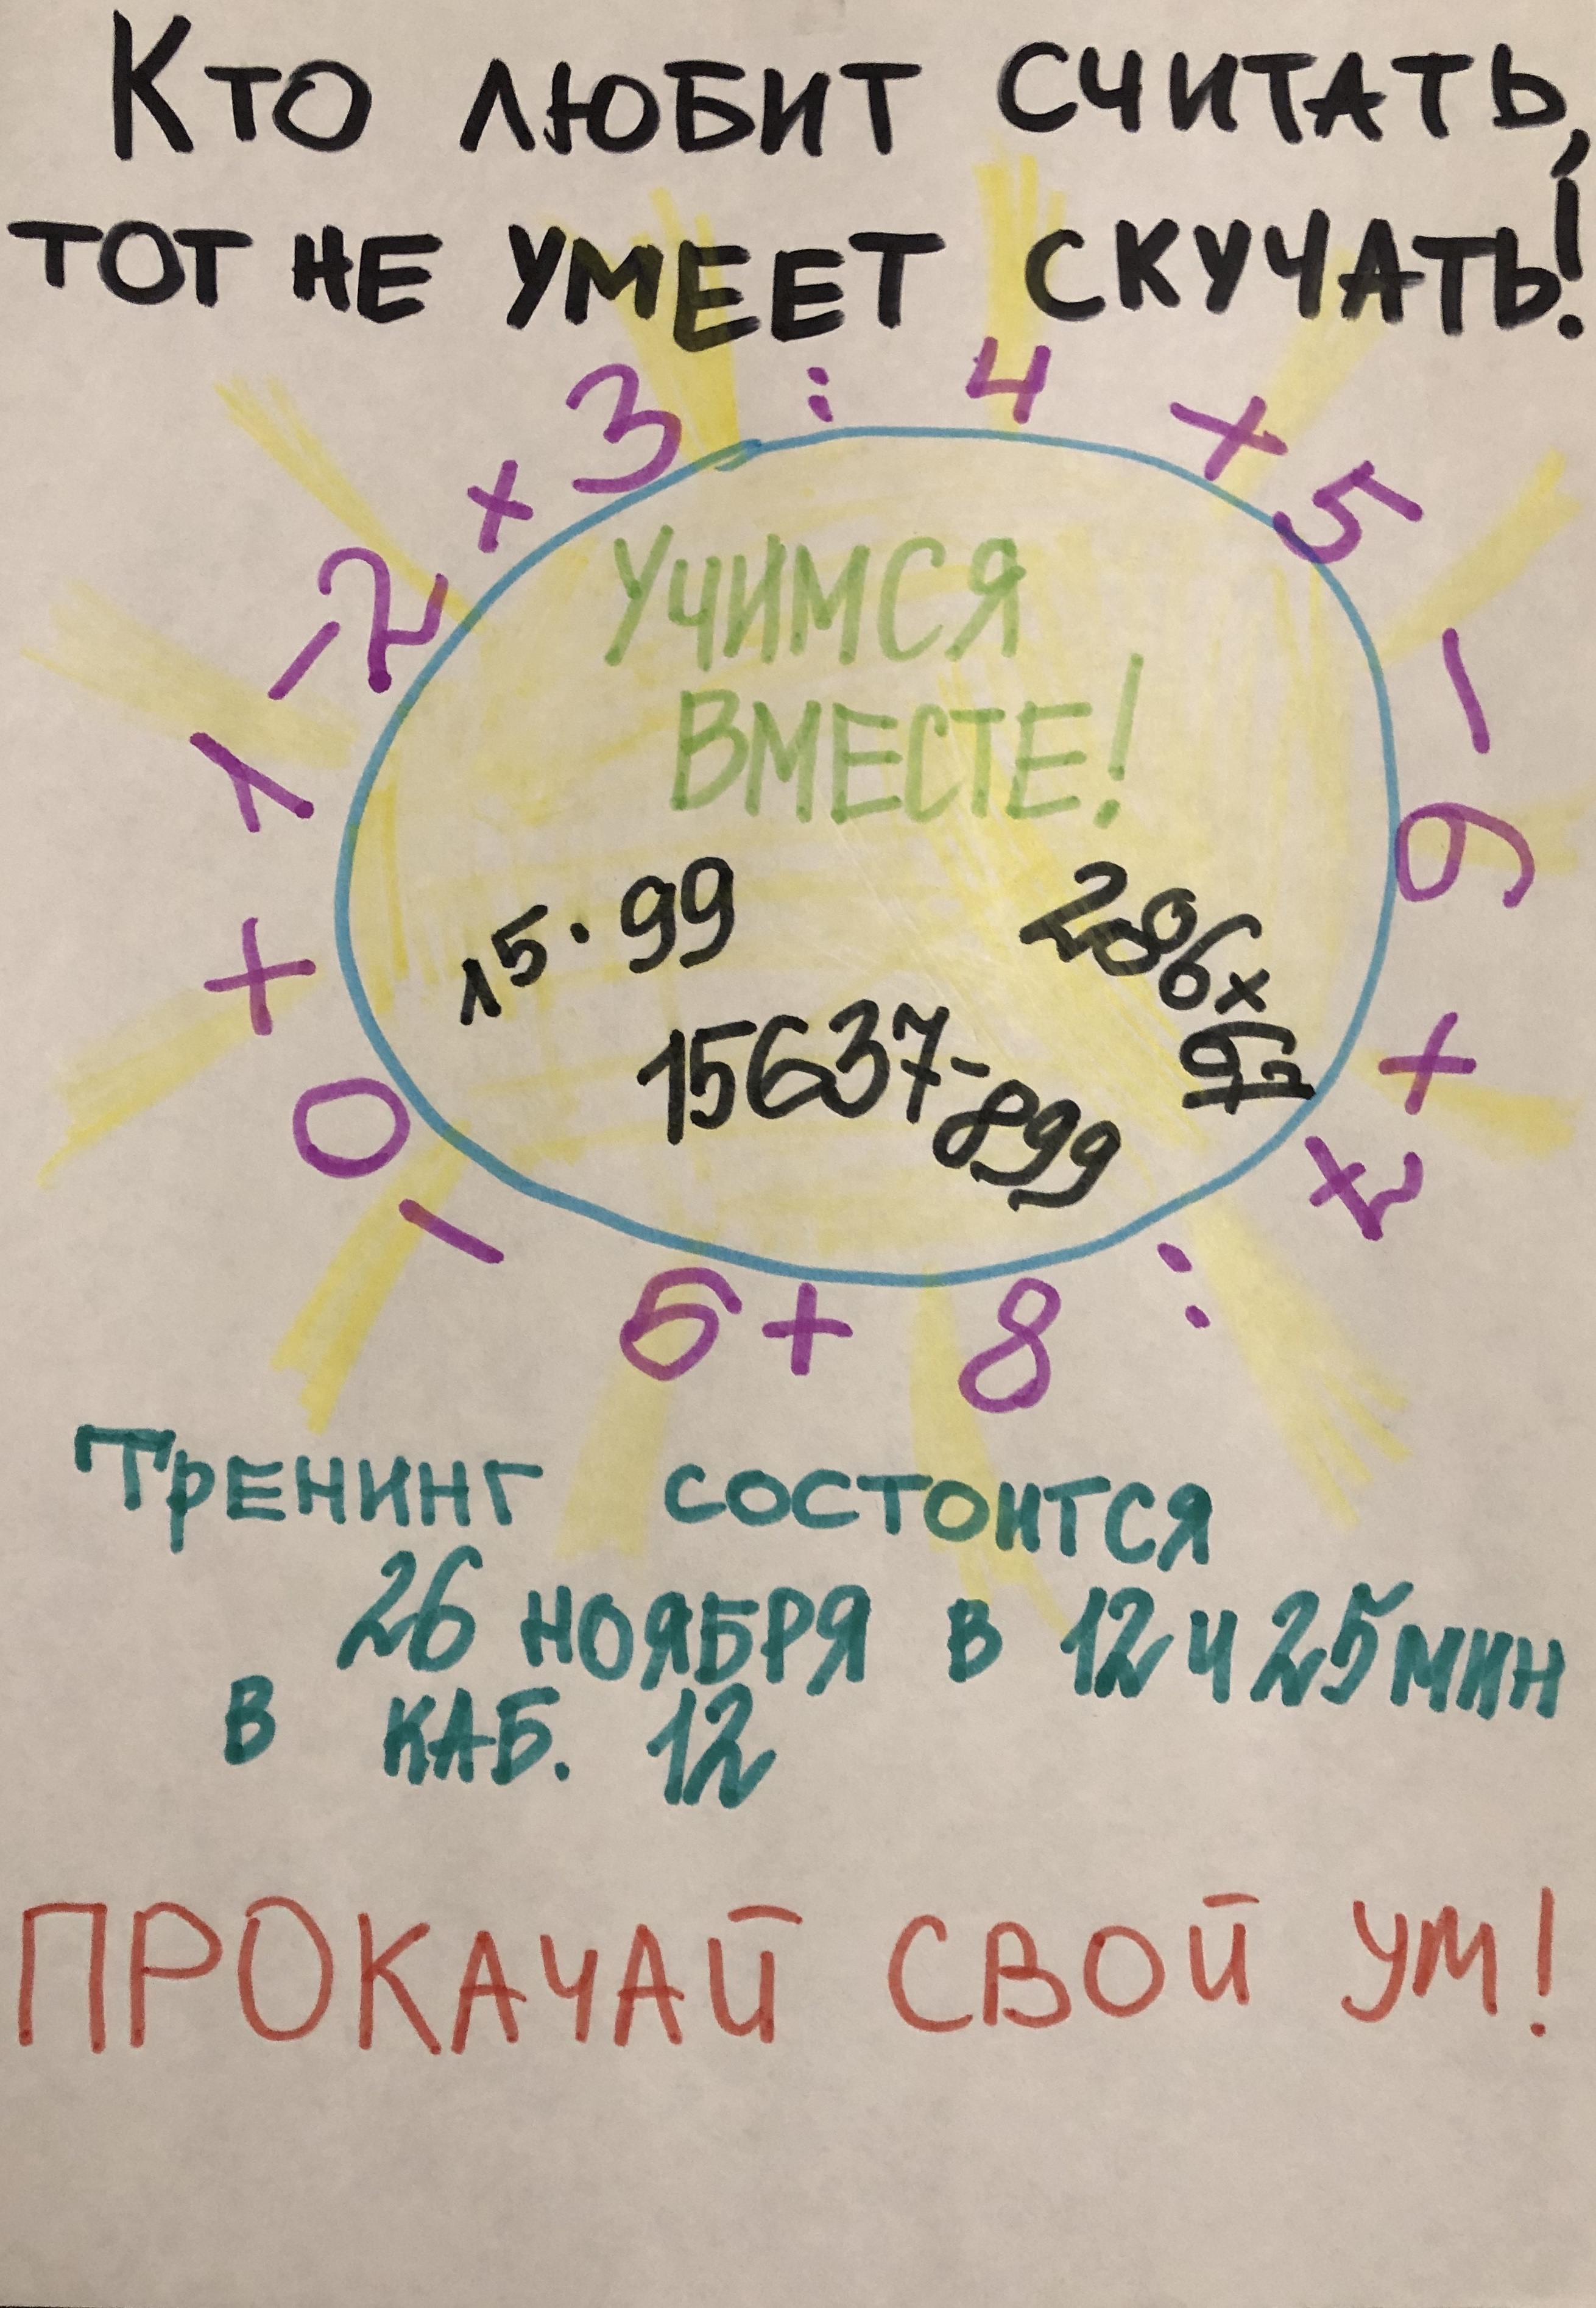 Кто любит считать,
тот не умеет скучать!
1 - 2 + 3 : 4 + 5 - 6 + 7 : 8 + 6 - 0 +
Учимся
вместе!
15 · 99
286 x
15637 - 899
Тренинг состоится
26 ноября в 12 ч 25 мин
в каб. 12
ПРОКАЧАЙ СВОЙ УМ!